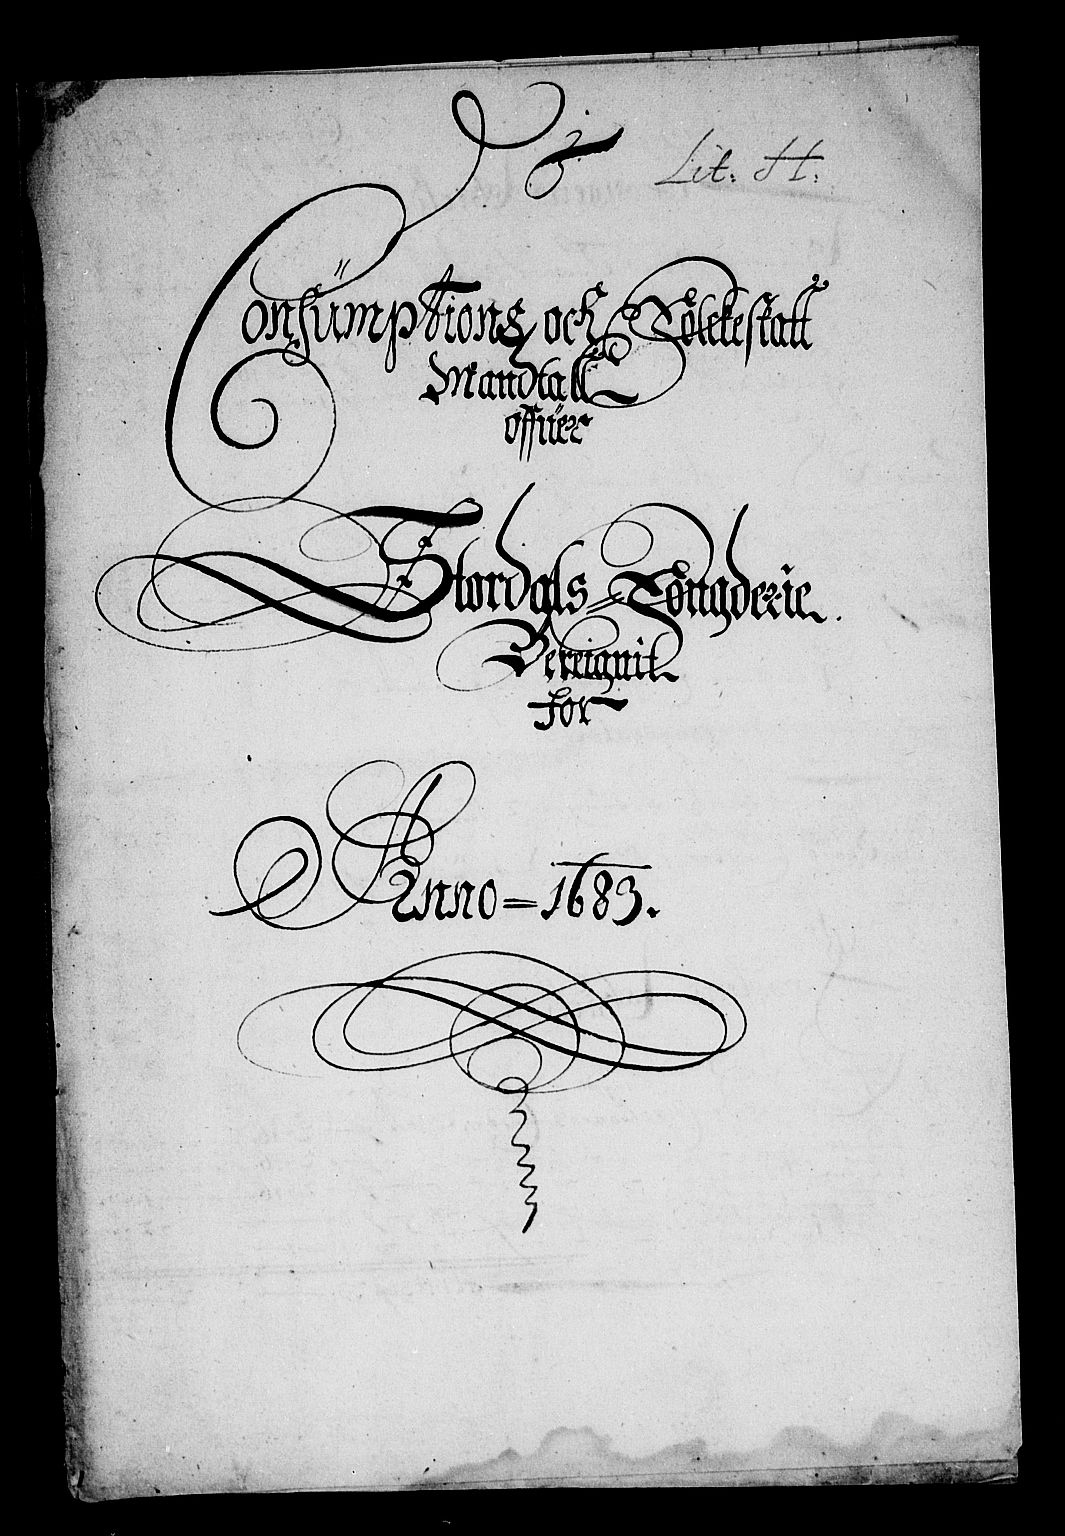 Lit. H.
Consümptions och Folckeskatt
Mandtall
offüer
Stordals Fougderie.
Bereignit
for
Anno = 1683.